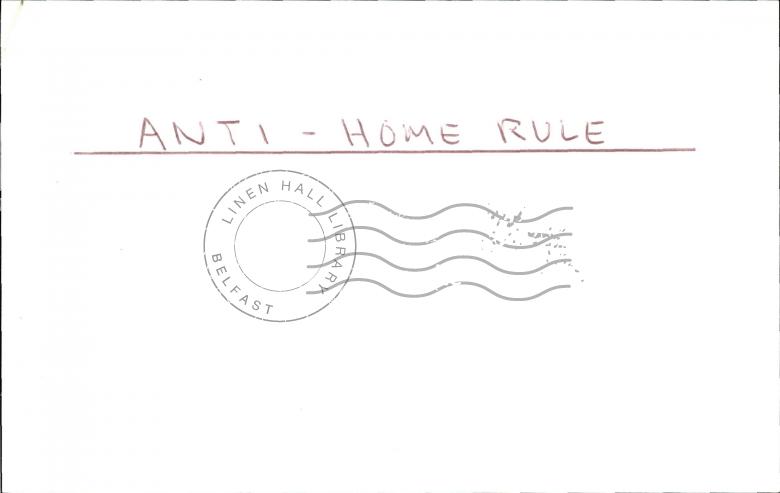 ANTI - HOME RULE
LINEN HALL LIBRARY
BELFAST